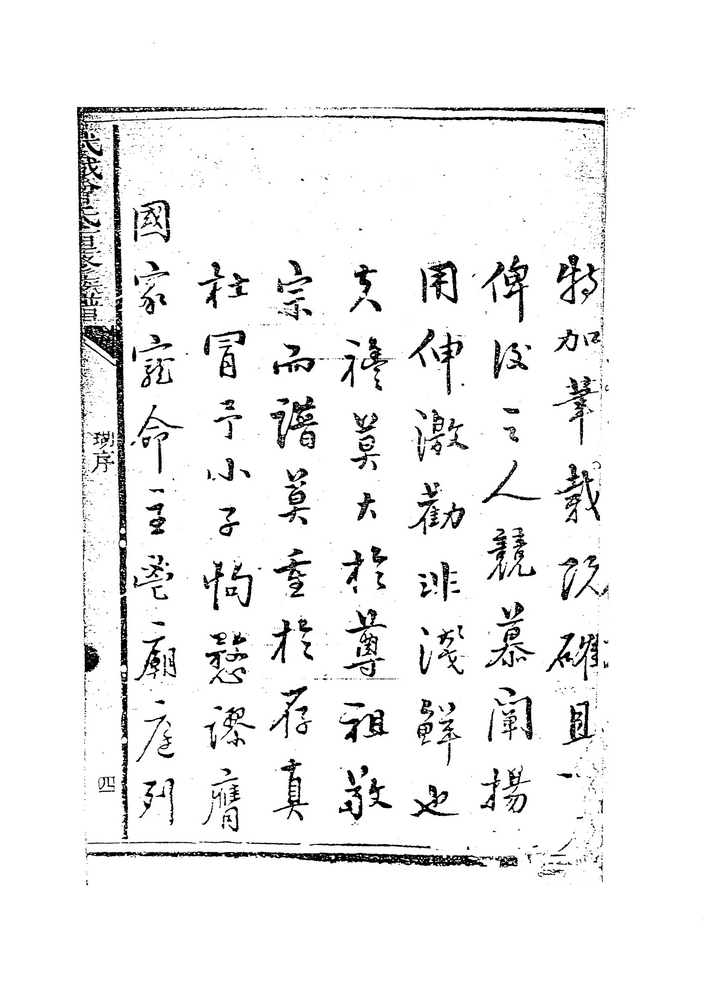 特加筆載既確且
俾後之人競慕闡揚
用伸激勸非淺鮮也
夫禮莫大於尊祖敬
宗而譜莫重於存真
杜冒予小子愚謬膺
國家寵命主鬯廟庭列
武城曾氏重修族譜
序
四